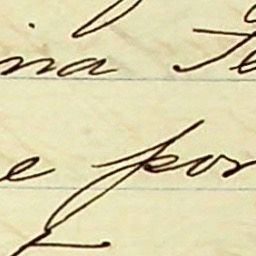 ina Te
e por